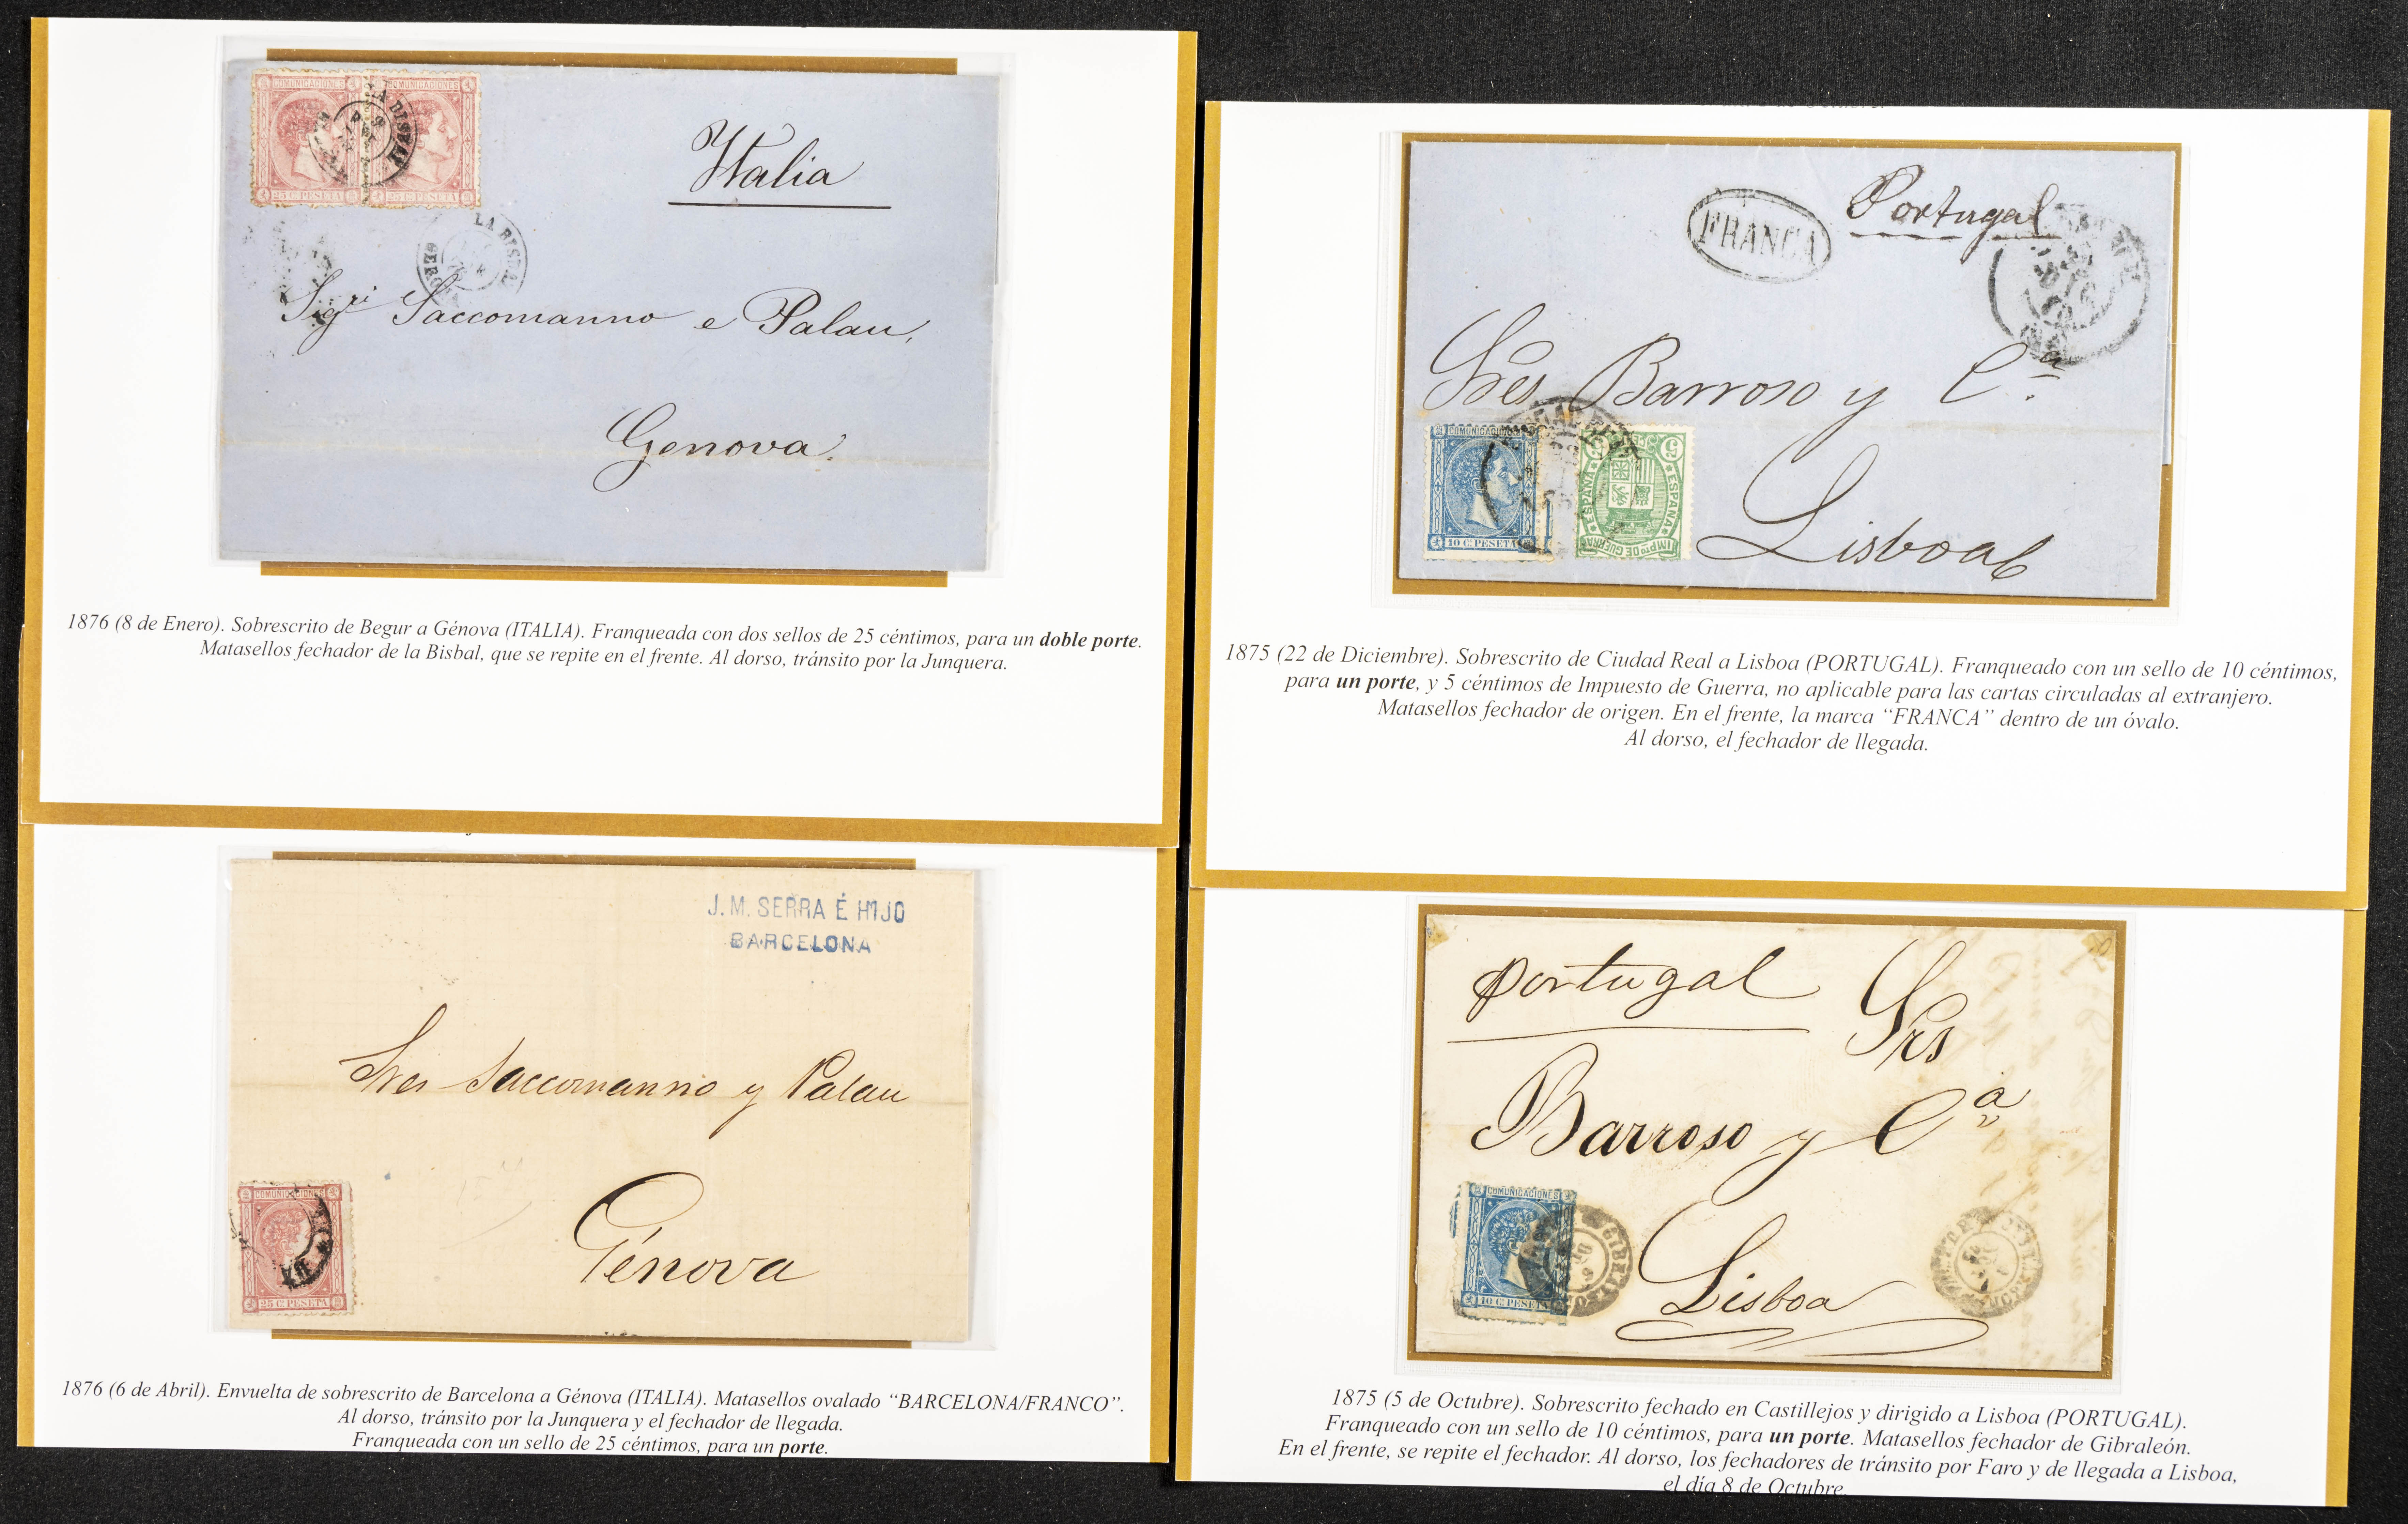 COMUNICACIONES COMUNICACIONES
25 C. PESETA 25 C. PESETA
LA BISBAL
Italia
LA BISBAL
GERONA
Sigri Saccomanno e Palau,
Genova.
1876 (8 de Enero). Sobrescrito de Begur a Génova (ITALIA). Franqueada con dos sellos de 25 céntimos, para un doble porte.
Matasellos fechador de la Bisbal, que se repite en el frente. Al dorso, tránsito por la Junquera.
Portugal
FRANCA
Sres Barroso y Ca.
COMUNICACIONES
10 C. PESETA
5 CENT 5
ESPAÑA ESPAÑA
IMPTO DE GUERRA
Lisboa
1875 (22 de Diciembre). Sobrescrito de Ciudad Real a Lisboa (PORTUGAL). Franqueado con un sello de 10 céntimos,
para un porte, y 5 céntimos de Impuesto de Guerra, no aplicable para las cartas circuladas al extranjero.
Matasellos fechador de origen. En el frente, la marca “FRANCA” dentro de un óvalo.
Al dorso, el fechador de llegada.
J. M. SERRA É HIJO
BARCELONA
Sres Saccomanno y Palau
Génova
COMUNICACIONES
25 C. PESETA
1876 (6 de Abril). Envuelta de sobrescrito de Barcelona a Génova (ITALIA). Matasellos ovalado “BARCELONA/FRANCO”.
Al dorso, tránsito por la Junquera y el fechador de llegada.
Franqueada con un sello de 25 céntimos, para un porte.
Portugal
Srs
Barroso y Ca
Lisboa
COMUNICACIONES
10 C. PESETA
1875 (5 de Octubre). Sobrescrito fechado en Castillejos y dirigido a Lisboa (PORTUGAL).
Franqueado con un sello de 10 céntimos, para un porte. Matasellos fechador de Gibraleón.
En el frente, se repite el fechador. Al dorso, los fechadores de tránsito por Faro y de llegada a Lisboa,
el día 8 de Octubre.